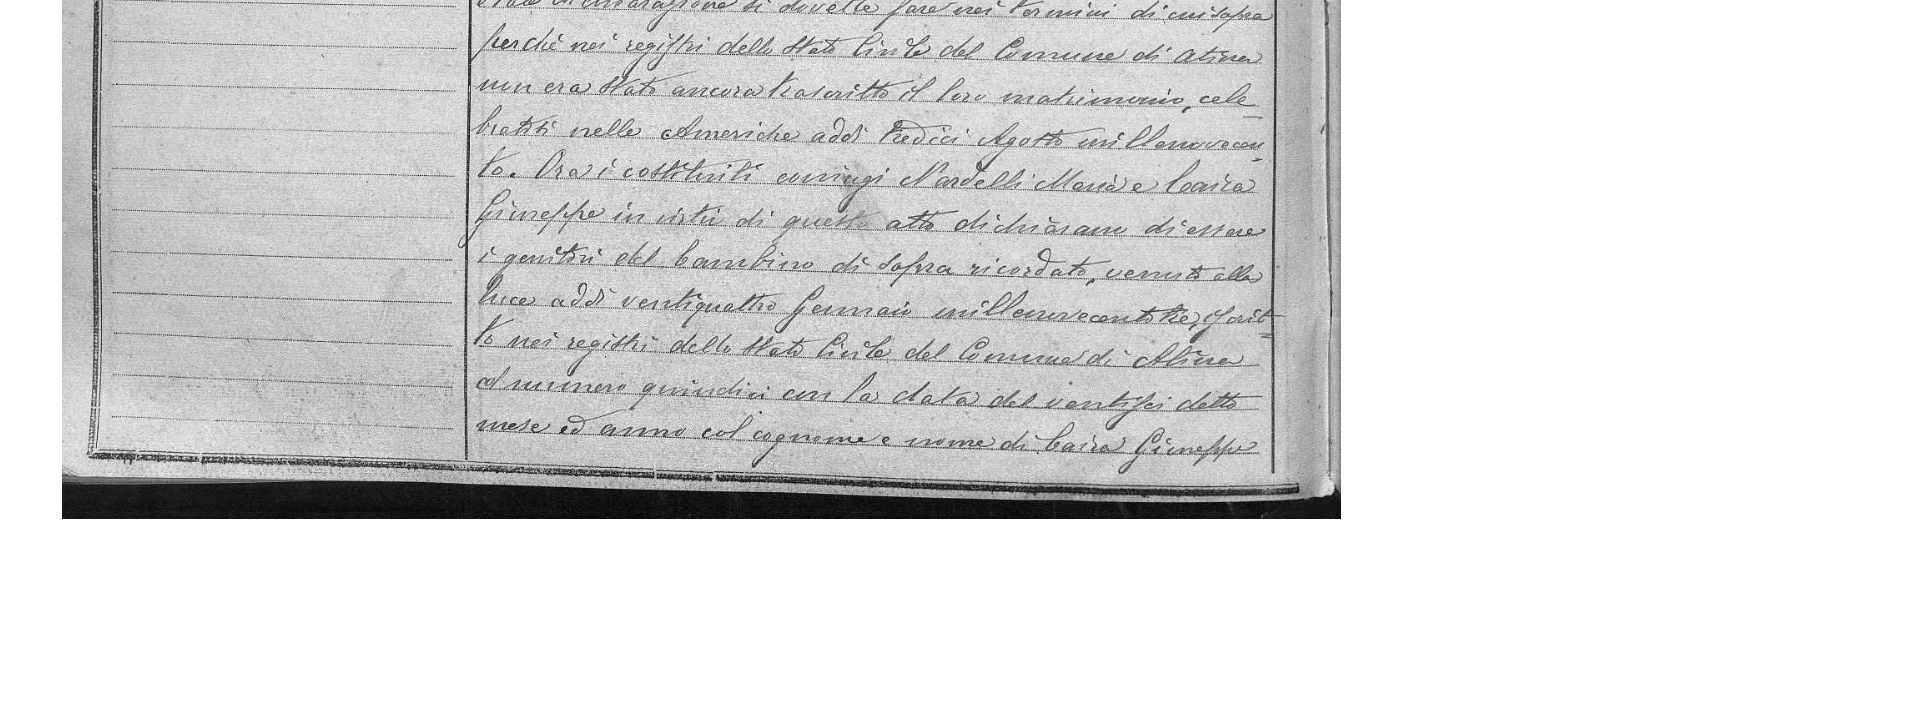 dichiarazione si dovette fare nei termini di cui sopra
perchè nei registri dello Stato Civile del Comune di Atina
non era stato ancora trascritto il loro matrimonio, cele
brato nelle Americhe addì tredici Agosto millenovecen
to. Ora i costituiti coniugi Nardelli Maria e Caira
Giuseppe in virtù di questo atto dichiarano di essere
i genitori del bambino di sopra ricordato, venuto alla
luce addì ventiquattro Gennaio millenovecentotre, iscrit
to nei registri dello Stato Civile del Comune di Atina
al numero quindici con la data del ventisei detto
mese ed anno col cognome e nome di Caira Giuseppe